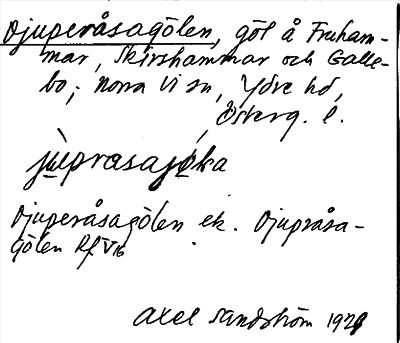 Djuperåsagölen, göl å Fruham-
mar, Skirshammar och Galle-
bo; Norra Vi sn, Ydre hd,
Österg. l.
jùprasajøka
Djuperåsagölen ek. Djupråsa-
gölen Rf V16
Axel Sandström 1929